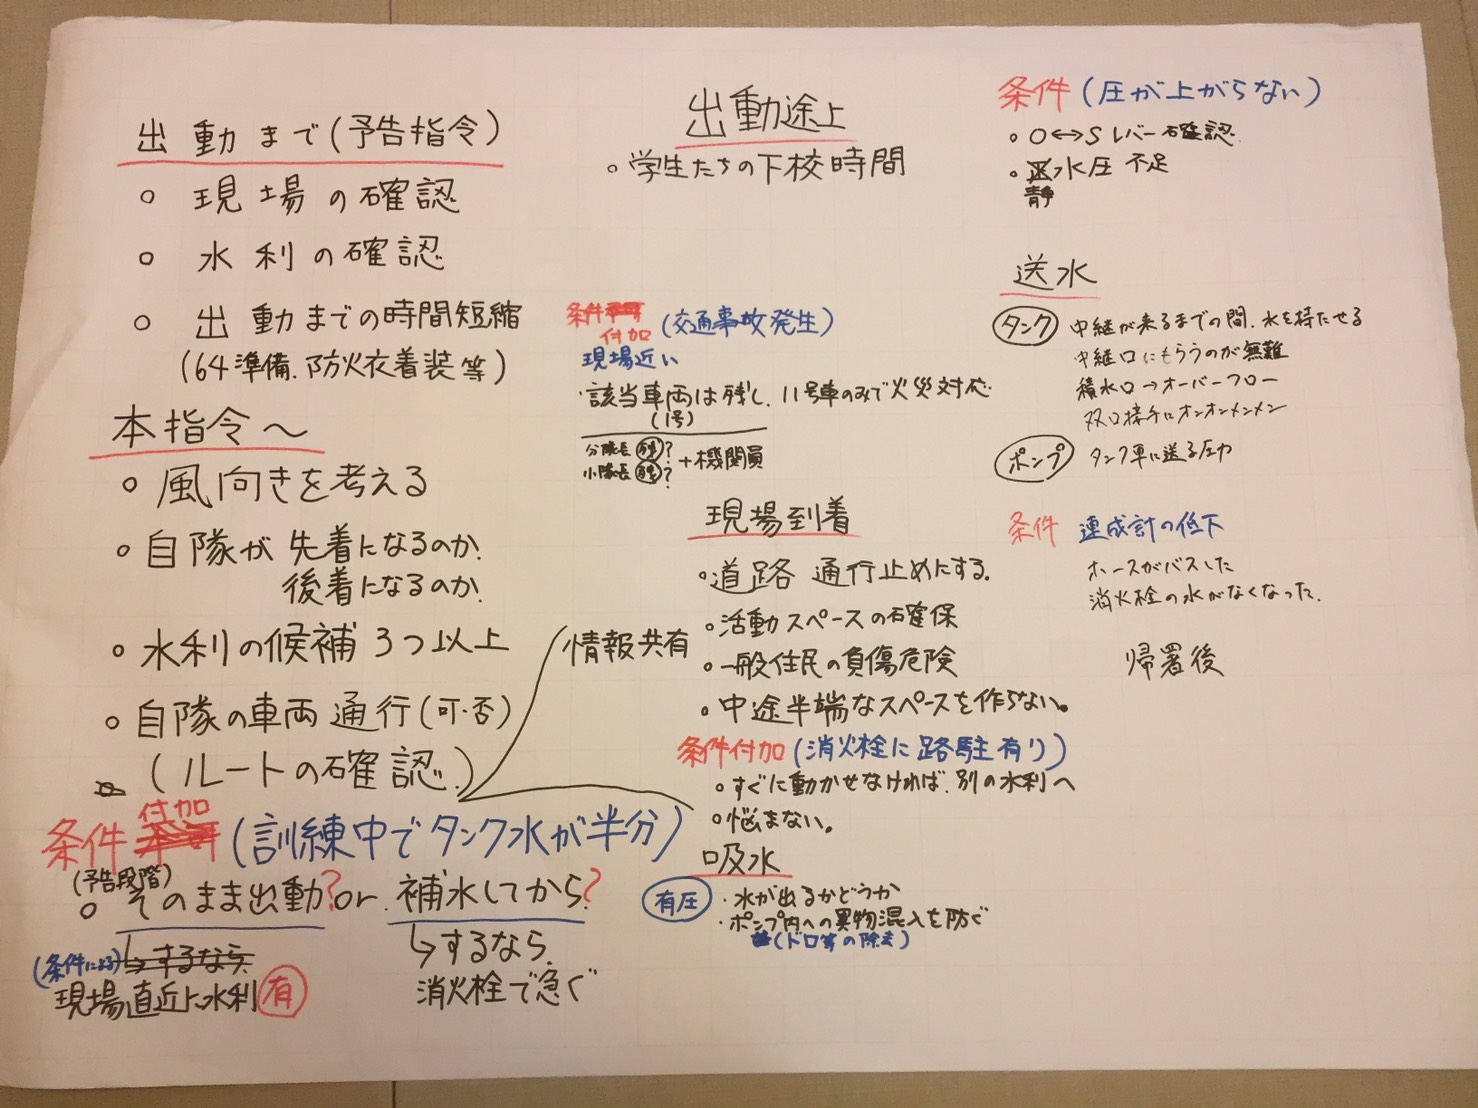 出動まで(予告指令)
○ 現場の確認
○ 水利の確認
○ 出動までの時間短縮
(64準備、防火衣着装等)
本指令～
○ 風向きを考える
○ 自隊が先着になるのか、
後着になるのか、
○ 水利の候補3つ以上
○ 自隊の車両通行(可・否)
(ルートの確認)
情報共有
条件付加(訓練中でタンク水が半分)
(予告段階)
○ そのまま出動?or.補水してから?
(条件による)→するなら、
現場直近に水利有
→するなら、
消火栓で急ぐ
出動途上
○ 学生たちの下校時間
条件付加(交通事故発生)
現場近い
・該当車両は残し、11号車のみで火災対応
(1号)
分隊長?
小隊長?
+機関員
現場到着
○道路 通行止めにする。
○活動スペースの確保
○一般住民の負傷危険
○中途半端なスペースを作らない。
条件付加(消火栓に路駐有り)
○すぐに動かせなければ、別の水利へ
○悩まない。
吸水
有圧 ・水が出るかどうか
・ポンプ内への異物混入を防ぐ
(ドロ等の除去)
条件(圧が上がらない)
○ O↔S レバー確認
○ 静水圧 不足
送水
タンク 中継が来るまでの間、水を持たせる
中継口にもらうのが無難
積水口→オーバーフロー
双口接手にオンオンメンメン
ポンプ タンク車に送る圧力
条件 連成計の低下
ホースがバスした
消火栓の水がなくなった、
帰署後